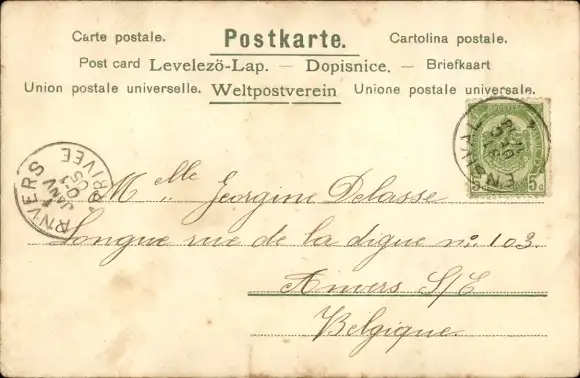 Carte postale. Postkarte. Cartolina postale.
Post card Levelezö-Lap. — Dopisnice. — Briefkaart
Union postale universelle. Weltpostverein Unione postale universale.
ENSIVAL
5 c
ANVERS
ARRIVEE
1 JANV
0-1
05
Melle Georgine Delasse
Longue rue de la digue no. 103.
Anvers S/E
Belgique.